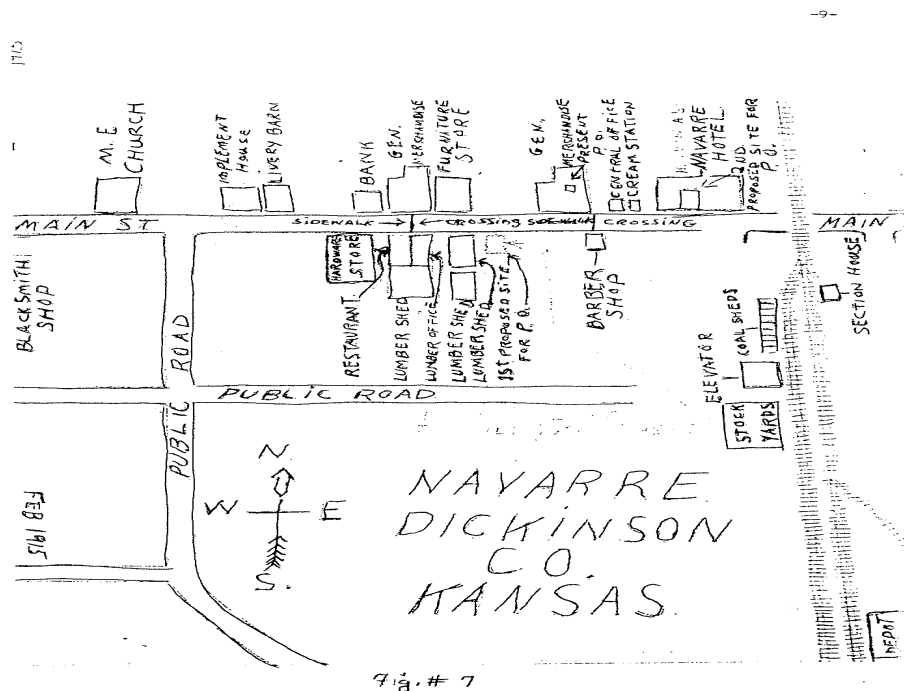 -9-
1915
M. E
CHURCH
IMPLEMENT
HOUSE
LIVERY BARN
BANK
GEN.
MERCHANDISE
FURNITURE
STORE
GEN.
MERCHANDISE
PRESENT
P.O.
CENTRAL OFFICE
CREAM STATION
NAVARRE
HOTEL
2ND.
PROPOSED SITE FOR
P.O.
MAIN ST
SIDEWALK
CROSSING
CROSSING
MAIN
BLACKSMITH
SHOP
ROAD
HARDWARE
STORE
RESTAURANT
LUMBER SHED
LUMBER OFFICE
LUMBER SHED
LUMBER SHED
1ST PROPOSED SITE
FOR P.O.
BARBER
SHOP
ELEVATOR
COAL SHEDS
SECTION HOUSE
STOCK
YARDS
PUBLIC ROAD
PUBLIC
FEB 1915
N.
W E
S.
NAVARRE
DICKINSON
CO.
KANSAS.
DEPOT
Fig. # 7